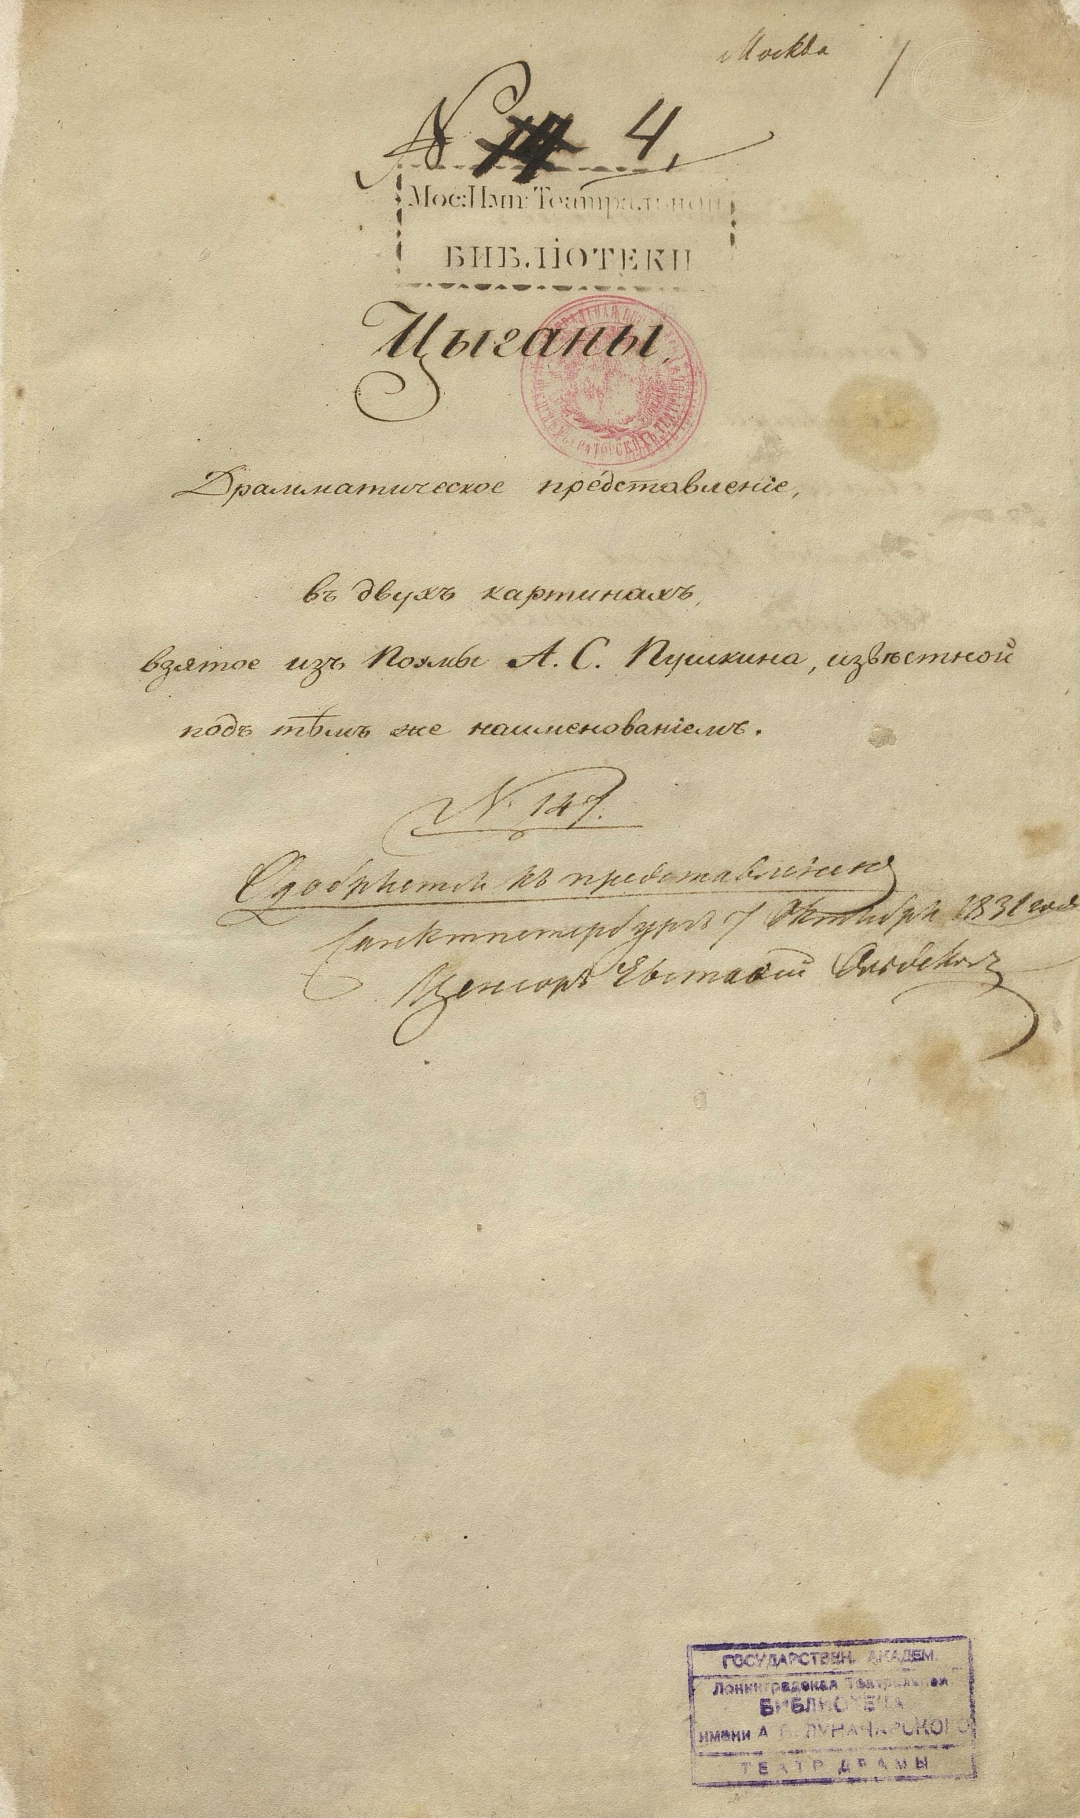 Москва
N 4.
Мос: Имп: Театральной
БИБЛІОТЕКИ
Цыганы.
Драмматическое представленіе,
въ двухъ картинахъ,
взятое изъ Поэмы А. С. Пушкина, извѣстной
подъ тѣмъ же наименованіемъ.
N. 147.
Одобряется къ представленію
Санктпетербургъ 7 Октября 1831 года
Цензоръ Евстафій Ольдекопъ
ГОСУДАРСТВЕН. АКАДЕМ.
Ленинградская Театральная
БИБЛИОТЕКА
имени А. В. ЛУНАЧАРСКОГО
ТЕАТР ДРАМЫ